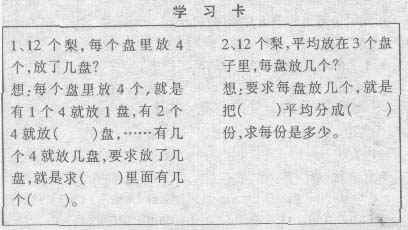 学习卡
1、12个梨，每个盘里放4
个，放了几盘？
想：每个盘里放4个，就是
有1个4就放1盘，有2个
4就放(　　)盘，……有几
个4就放几盘，要求放了几
盘，就是求(　　)里面有几
个(　　)。
2、12个梨，平均放在3个盘
子里，每盘放几个？
想：要求每盘放几个，就是
把(　　)平均分成(　　)
份，求每份是多少。